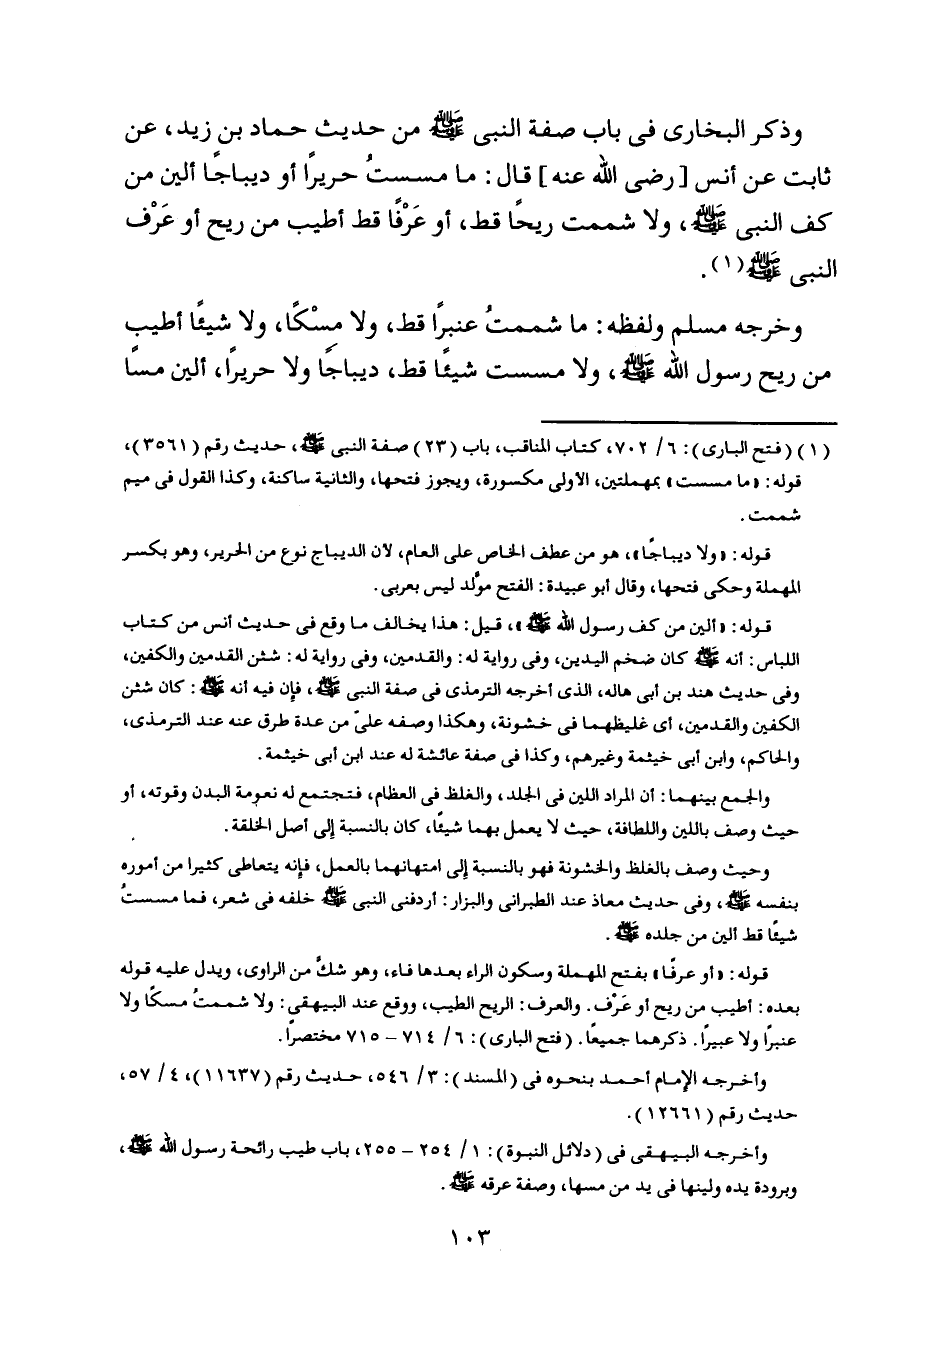 وذكر البخارى فى باب صفة النبى ﷺ من حديث حماد بن زيد، عن
ثابت عن أنس [رضى الله عنه] قال: ما مسستُ حريرًا أو ديباجًا ألين من
كف النبى ﷺ، ولا شممت ريحًا قط، أو عَرْفًا قط أطيب من ريح أو عَرْف
النبى ﷺ(١).
وخرجه مسلم ولفظه: ما شممتُ عنبرًا قط، ولا مِسْكًا، ولا شيئًا أطيب
من ريح رسول الله ﷺ، ولا مسست شيئًا قط، ديباجًا ولا حريرًا، ألين مسًا
(١) (فتح البارى): ٦/ ٧٠٢، كتاب المناقب، باب (٢٣) صفة النبى ﷺ، حديث رقم (٣٥٦١)،
قوله: «ما مسست» بمهملتين، الأولى مكسورة، ويجوز فتحها، والثانية ساكنة، وكذا القول فى ميم
شممت.
قوله: «ولا ديباجًا»، هو من عطف الخاص على العام، لأن الديباج نوع من الحرير، وهو بكسر
المهملة وحكى فتحها، وقال أبو عبيدة: الفتح مولّد ليس بعربى.
قوله: «ألين من كف رسول الله ﷺ»، قيل: هذا يخالف ما وقع فى حديث أنس من كتاب
اللباس: أنه ﷺ كان ضخم اليدين، وفى رواية له: والقدمين، وفى رواية له: شثن القدمين والكفين،
وفى حديث هند بن أبى هاله، الذى أخرجه الترمذى فى صفة النبى ﷺ، فإن فيه أنه ﷺ: كان شثن
الكفين والقدمين، أى غليظهما فى خشونة، وهكذا وصفه علىّ من عدة طرق عنه عند الترمذى،
والحاكم، وابن أبى خيثمة وغيرهم، وكذا فى صفة عائشة له عند ابن أبى خيثمة.
والجمع بينهما: أن المراد اللين فى الجلد، والغلظ فى العظام، فتجتمع له نعومة البدن وقوته، أو
حيث وصف باللين واللطافة، حيث لا يعمل بهما شيئًا، كان بالنسبة إلى أصل الخلقة.
وحيث وصف بالغلظ والخشونة فهو بالنسبة إلى امتهانهما بالعمل، فإنه يتعاطى كثيرا من أموره
بنفسه ﷺ، وفى حديث معاذ عند الطبرانى والبزار: أردفنى النبى ﷺ خلفه فى شعر، فما مسستُ
شيئًا قط ألين من جلده ﷺ.
قوله: «أو عرفًا» بفتح المهملة وسكون الراء بعدها فاء، وهو شكٌ من الراوى، ويدل عليه قوله
بعده: أطيب من ريح أو عَرْف. والعرف: الريح الطيب، ووقع عند البيهقى: ولا شممتُ مسكًا ولا
عنبرًا ولا عبيرًا. ذكرهما جميعًا. (فتح البارى): ٦/ ٧١٤ – ٧١٥ مختصراً.
وأخرجه الإمام أحمد بنحوه فى (المسند): ٣/ ٥٤٦، حديث رقم (١١٦٣٧)، ٤/ ٥٧،
حديث رقم (١٢٦٦١).
وأخرجه البيهقى فى (دلائل النبوة): ١/ ٢٥٤ – ٢٥٥، باب طيب رائحة رسول الله ﷺ،
وبرودة يده ولينها فى يد من مسها، وصفة عرقه ﷺ.
١٠٣